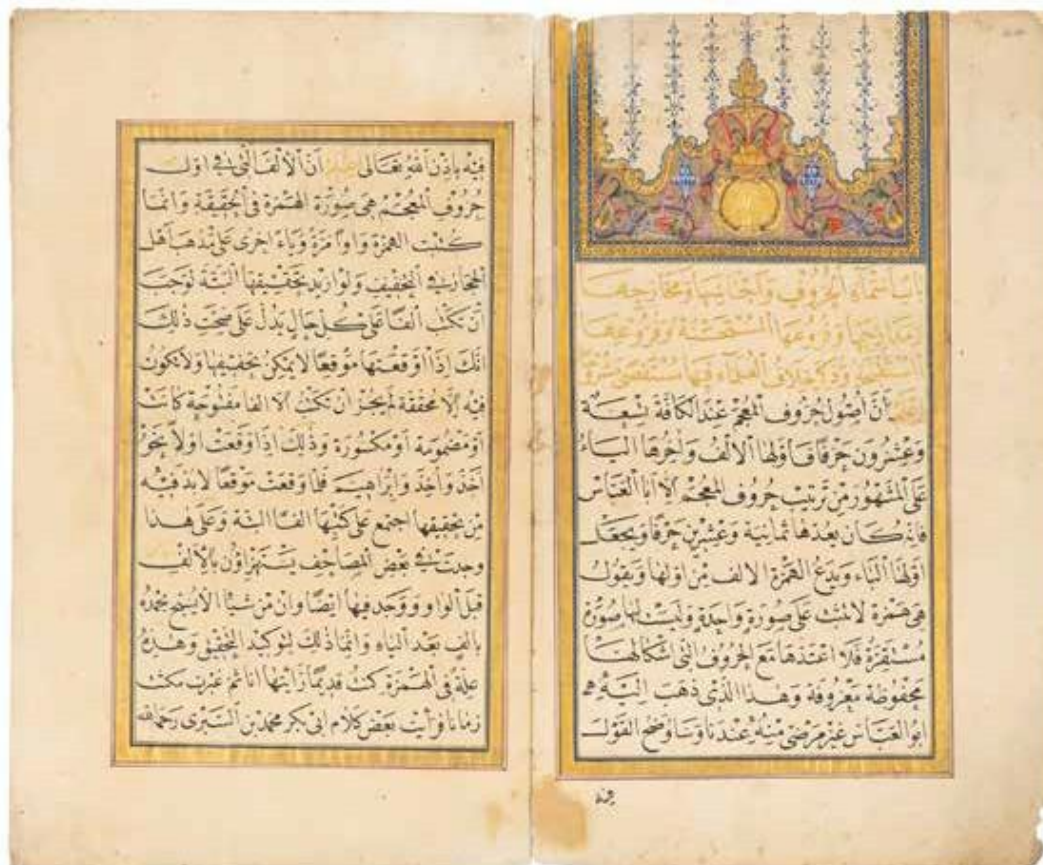 باب أسماء الحروف وأجناسها ومخارجها
ومدارجها وفروعها المستحسنة وفروعها
المستقبحة وذكر خلاف العلماء فيها مستقصى مشروحا
اعلم أن أصول حروف المعجم عند الكافة تسعة
وعشرون حرفا فأولها الألف وآخرها الياء
على المشهور من ترتيب حروف المعجم الا ابا العباس
فانه كان يعدها ثمانية وعشرين حرفا ويجعل
اولها الباء ويدع الهمزة الالف من اولها ويقول
هي همزة لا تثبت على صورة واحدة وليست لها صورة
مستقرة فلا اعتدها مع الحروف التي اشكالها
محفوظة معروفة وهذا الذي ذهب اليه
ابو العباس غير مرضي منه عندنا وساوضح القول
فيه
فيه باذن الله تعالى اعلم أن الألف التي في اول
حروف المعجم هي صورة الهمزة في الحقيقة وانما
كتبت الهمزة واوا مرة وياء اخرى على مذهب اهل
الحجاز في التخفيف ولو اريد تحقيقها البتة لوجب
ان تكتب ألفا على كل حال يدل على صحة ذلك
انك إذا أوقعتها موقعا لا يمكن تخفيفها ولا تكون
فيه إلا محققة لم يجز أن تكتب الا الفا مفتوحة كانت
أو مضمومة او مكسورة وذلك إذا وقعت اولا نحو
أخذ وأخذ وإبراهيم فلما وقعت موقعا لا بد فيه
من تحقيقها اجتمع على كتبها الفا البتة وعلى هذا
وجدت في بعض المصاحف يستهزاون بالألف
قبل الواو ووجد فيها ايضا وان من شيا الا يسبح بحمده
بالف بعد الياء وانما ذلك لتوكيد التحقيق وهذه
علة في الهمزة كنت قديما رأيتها انا ثم غبرت مكث
زمانا فرأيت بعض كلام ابي بكر محمد بن السري رحمه الله